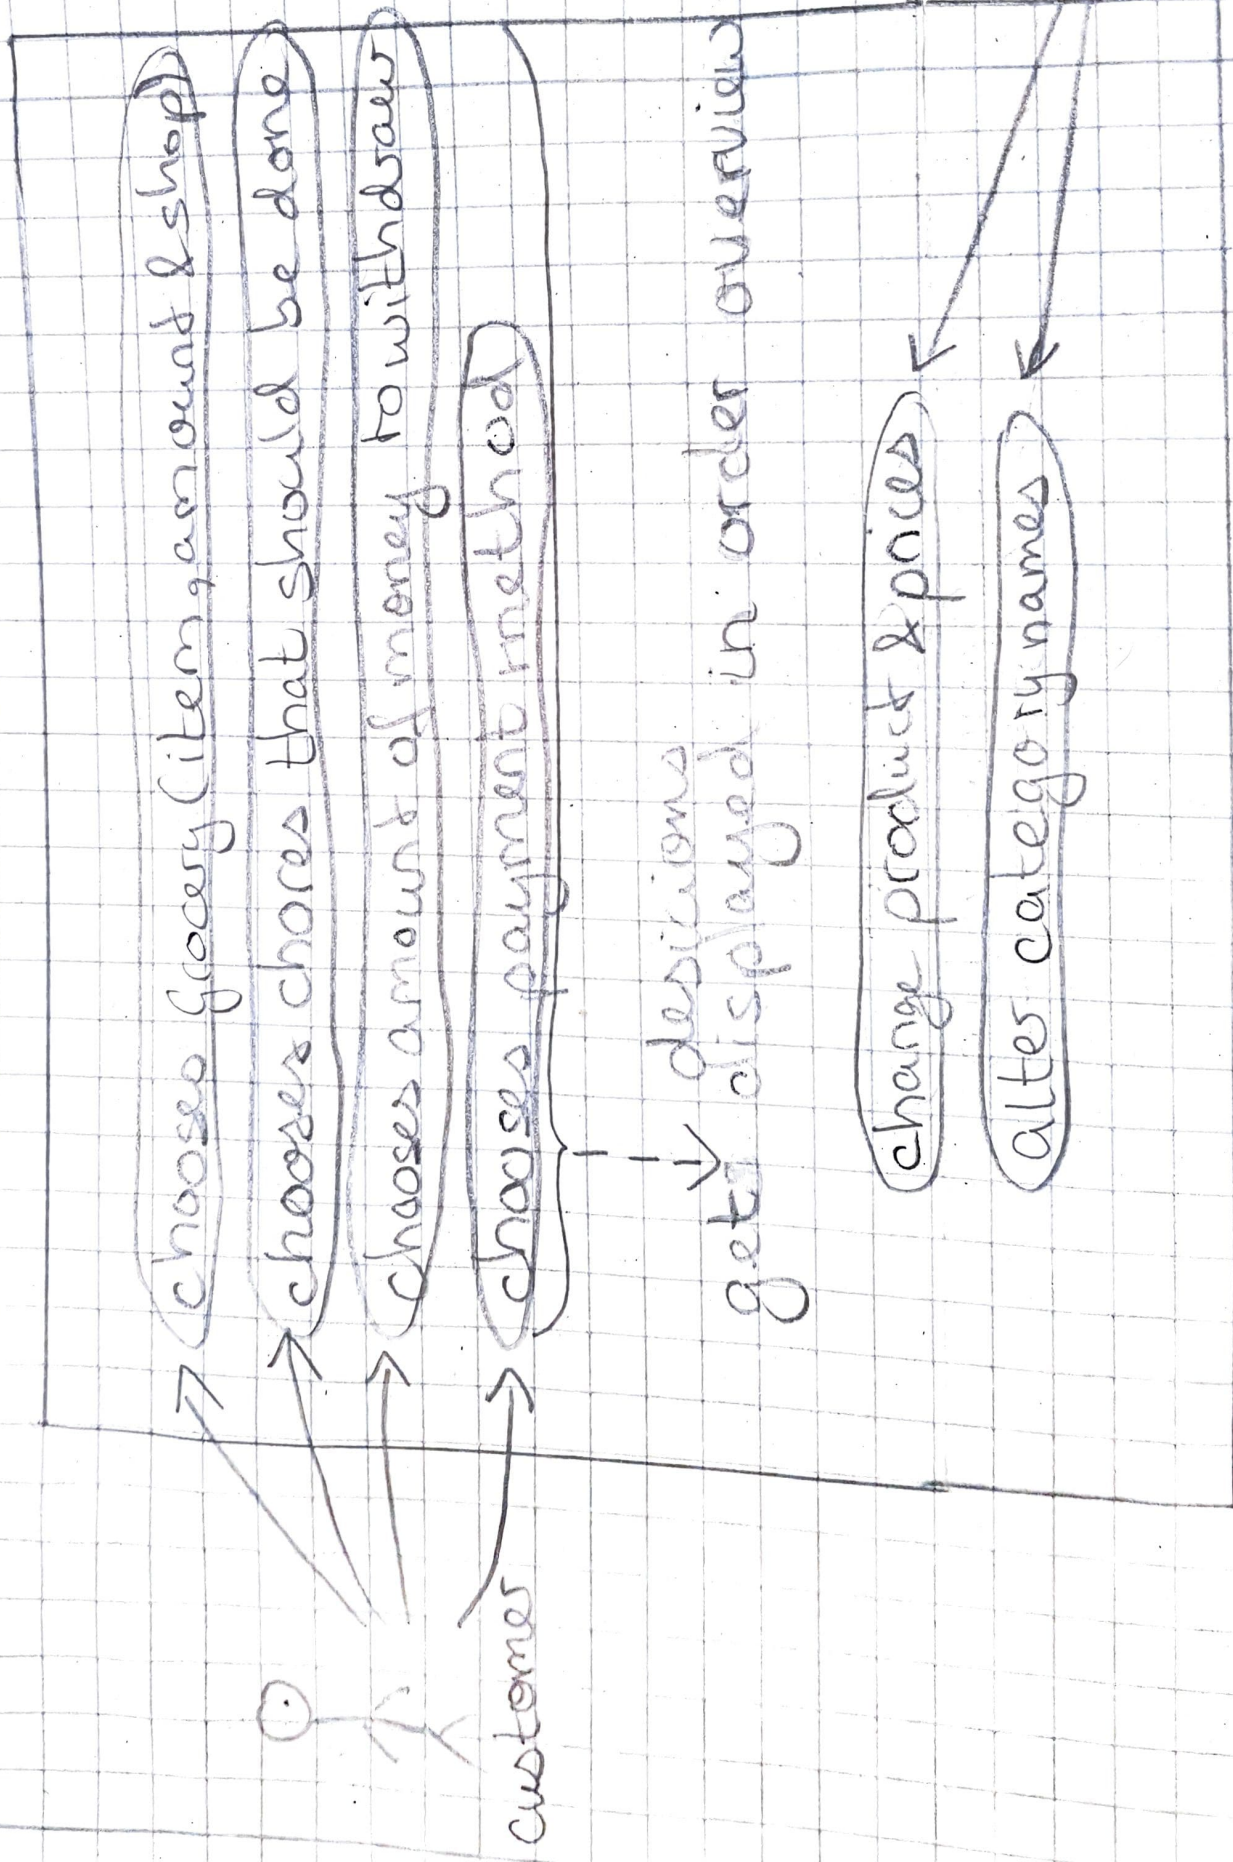 chooses Grocery (item, amount & shop)
chooses chores that should be done
chooses amount of money to withdraw
chooses payment method
customer
desicions
get displayed in order overview
change product & prices
alter category names